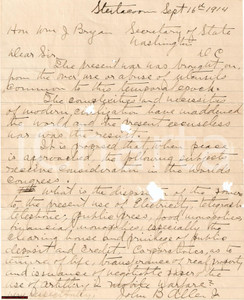 Steilacoom Sept 16th 1914
Hon Wm J Bryan Secretary of State
Washington
D C
Dear Sir
The present war was brought on,
from the over use or abuse of utensils
common to this temporal epoch.
The complexities and necessities
of modern civilization have maddened
the world and the present causeless
war was the result.
It is proposed that when peace
is approached, the following subject
receive consideration in the world's
Congress.
What is the degree of the power
to the present use of Electricity, telegraph
telephone, public press, food monopolies
financial monopolies, especially the
clearing house and practices of public
deposit and credit Corporations, as to
of life, insurance of property
and issuance of negotiable paper, the
use of artillery &amp; smoke warfare
John B